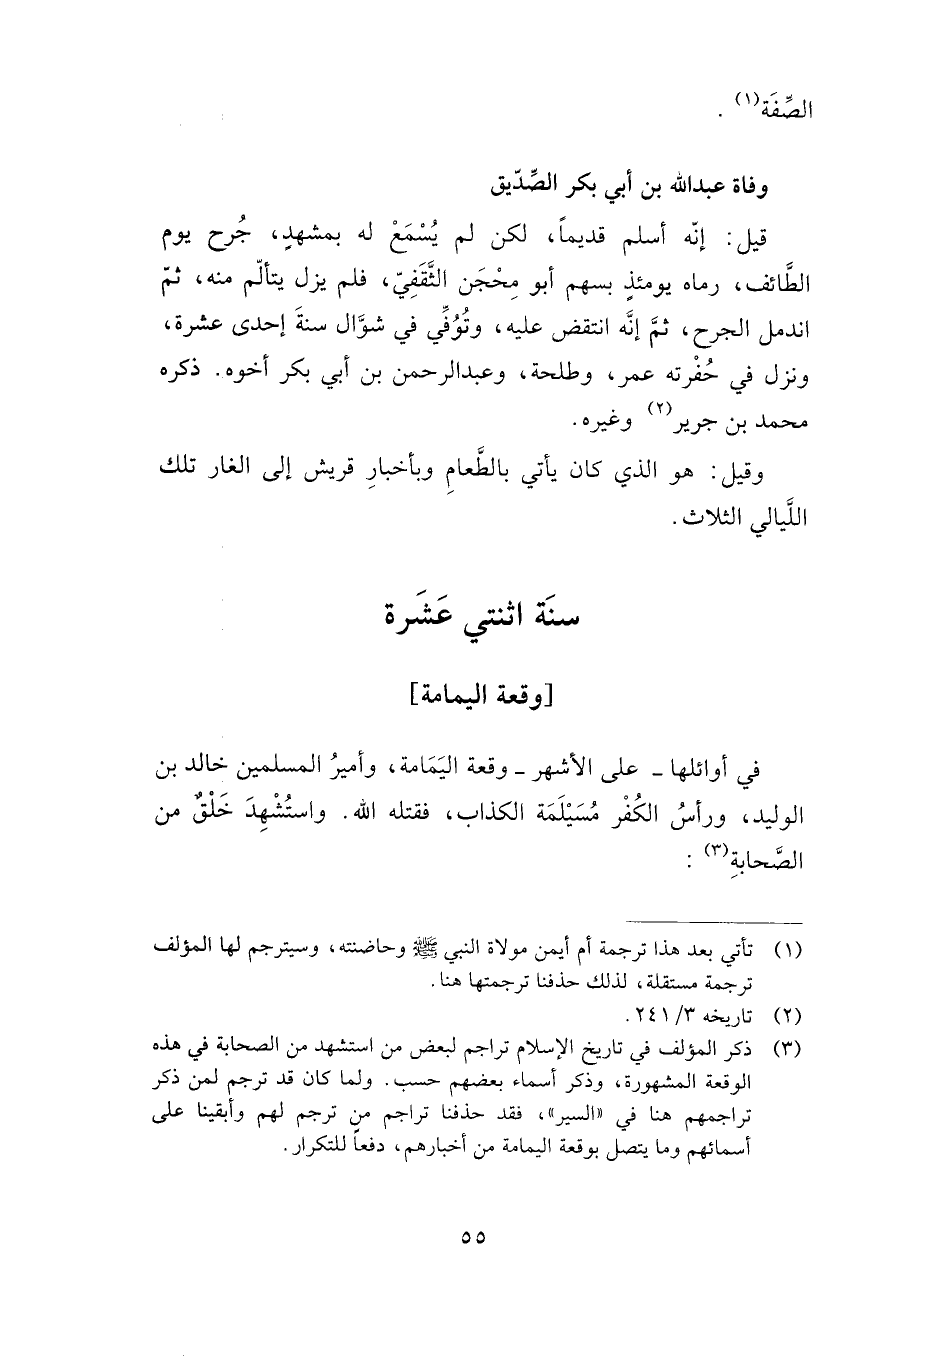 الصِّفَة(١) .
وفاة عبدالله بن أبي بكر الصِّدّيق
قيل: إنّه أسلم قديماً، لكن لم يُسْمَعْ له بمشهدٍ، جُرح يوم
الطَّائف، رماه يومئذٍ بسهم أبو مِحْجَن الثَّقَفِيّ، فلم يزل يتألّم منه، ثمّ
اندمل الجرح، ثمَّ إنَّه انتقض عليه، وتُوُفِّي في شوَّال سنةَ إحدى عشرة،
ونزل في حُفْرته عمر، وطلحة، وعبدالرحمن بن أبي بكر أخوه. ذكره
محمد بن جرير(٢) وغيره.
وقيل: هو الذي كان يأتي بالطَّعامِ وبأخبارِ قريش إلى الغار تلك
اللَّيالي الثلاث.
سنَة اثنتي عَشَرة
[وقعة اليمامة]
في أوائلها - على الأشهر - وقعة اليَمَامة، وأميرُ المسلمين خالد بن
الوليد، ورأسُ الكُفْر مُسَيْلَمَة الكذاب، فقتله الله. واستُشْهِدَ خَلْقٌ من
الصَّحابةِ(٣) :
(١) تأتي بعد هذا ترجمة أم أيمن مولاة النبي ﷺ وحاضنته، وسيترجم لها المؤلف
ترجمة مستقلة، لذلك حذفنا ترجمتها هنا.
(٢) تاريخه ٣/ ٢٤١.
(٣) ذكر المؤلف في تاريخ الإسلام تراجم لبعض من استشهد من الصحابة في هذه
الوقعة المشهورة، وذكر أسماء بعضهم حسب. ولما كان قد ترجم لمن ذكر
تراجمهم هنا في «السير»، فقد حذفنا تراجم من ترجم لهم وأبقينا على
أسمائهم وما يتصل بوقعة اليمامة من أخبارهم، دفعاً للتكرار.
٥٥